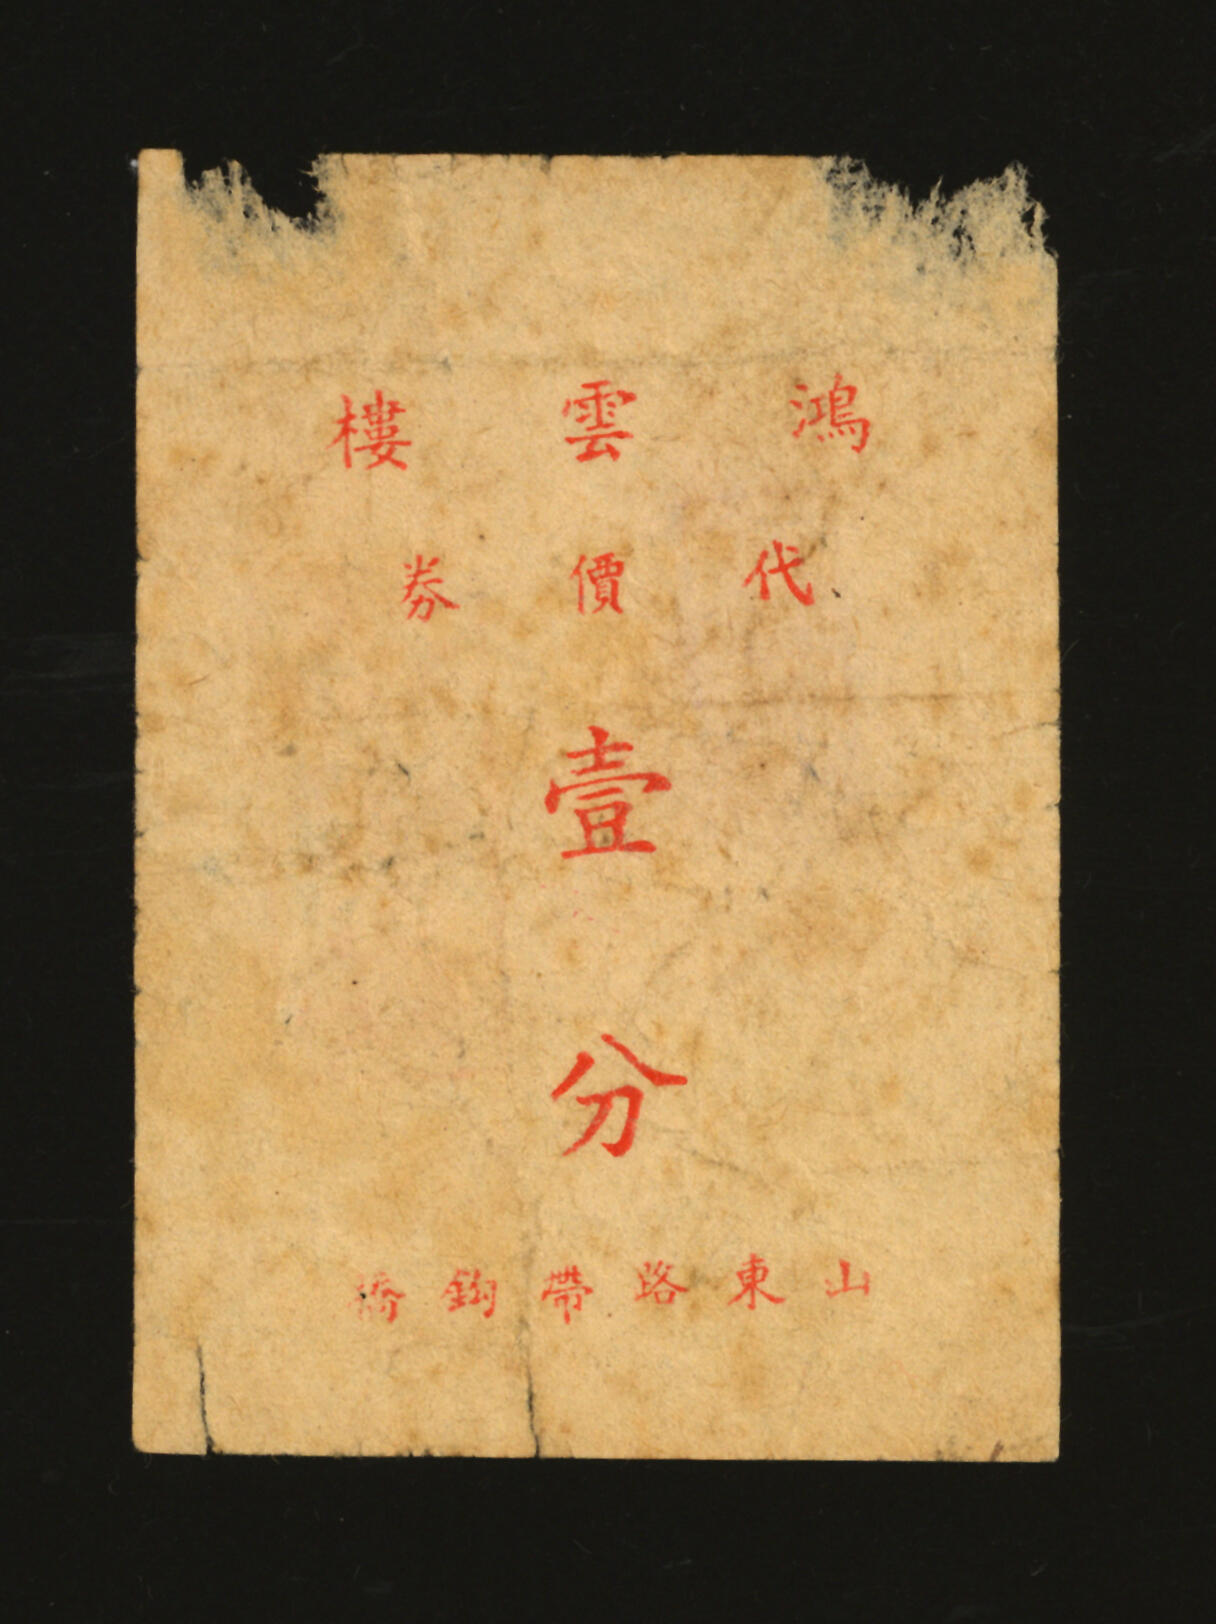 鴻雲樓
代價券
壹
分
山東路帶鈎橋